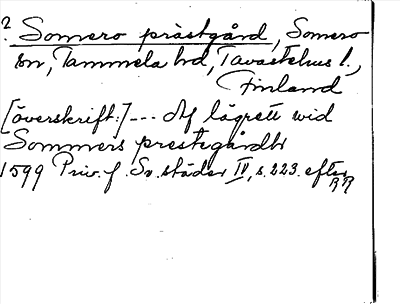 2. Somero prästgård, Somero
sn, Tammela hd, Tavastehus l.,
Finland
[överskrift:] --- Af lägrett wid
Sommers prestegårdh
1599 Priv. f. Sv. städer IV, s. 223. efter
RR